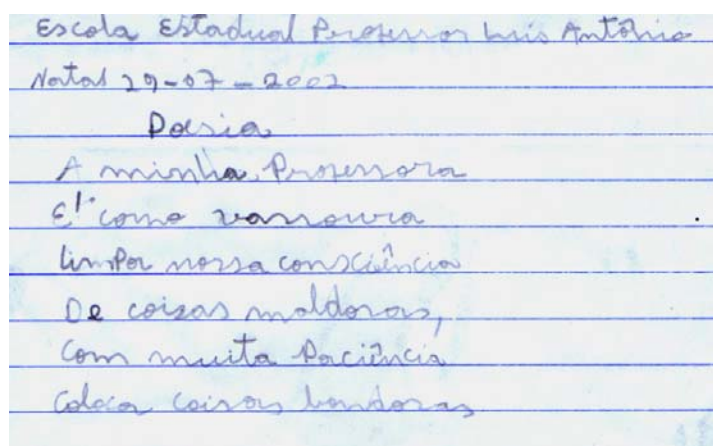 Escola Estadual Professor Luis Antônio
Natal 29-07-2002
Poesia
A minha Professora
E' como vassoura
limpa nossa consciência
De coizas maldosas,
Com muita Paciência
Coloca coisas bondosas